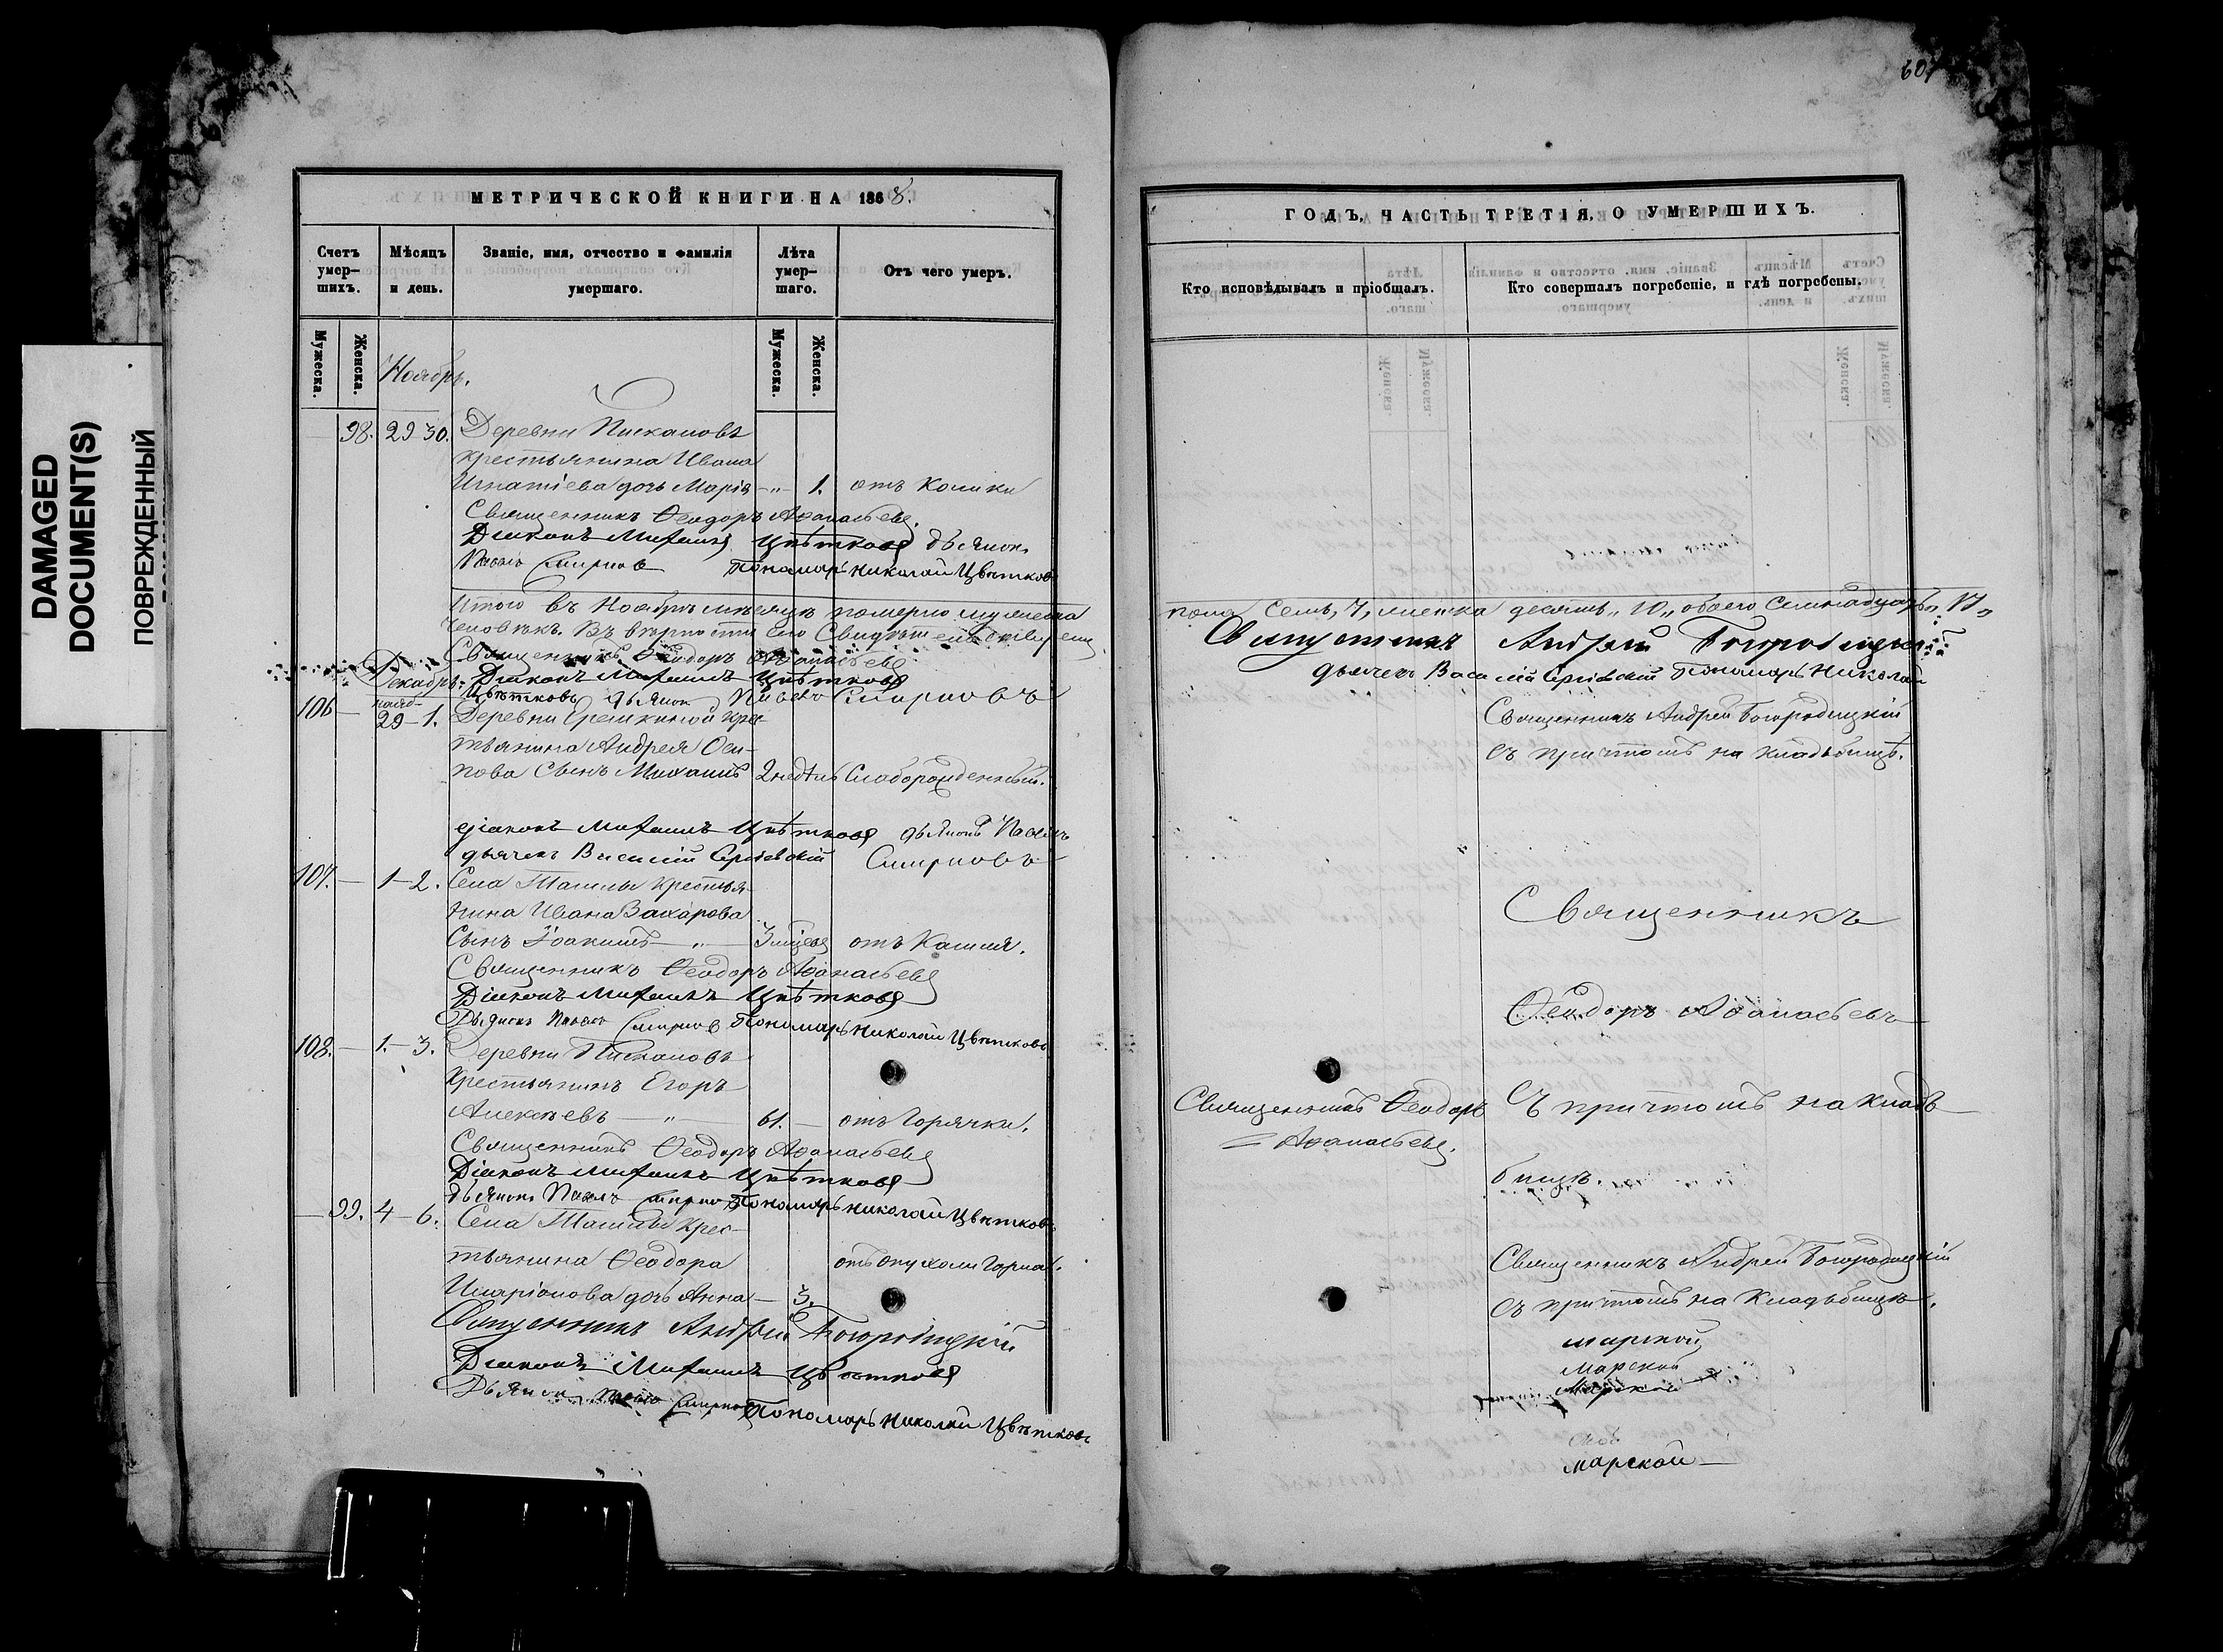 DAMAGED
DOCUMENT(S)
ПОВРЕЖДЕННЫЙ
МЕТРИЧЕСКОЙ КНИГИ НА 1868.
Счетъ умер-шихъ.
Мѣсяцъ и день.
Званіе, имя, отчество и фамилія умершаго.
Лѣта умер-шаго.
Отъ чего умеръ.
Мужеска.
Женска.
Мужеска.
Женска.
Ноябрь.
98. 29 30. Деревни Пискаловѣ
крестьянина Ивана
Игнатіева дочь Марія - „ - 1. отъ Колики
Священникъ Ѳеодоръ Аѳанасьевъ.
Діаконъ Михаилъ Цвѣтковъ дьячокъ
Павелъ Смирновъ пономарь Николай Цвѣтковъ
Итого въ Ноябрѣ мѣсяцѣ померло мужеска
человѣкъ. Въ вѣрности сего свидѣтельствуемъ
Священникъ Ѳеодоръ Аѳанасьевъ
Декабрь. Діаконъ Михаилъ Цвѣтковъ
Цвѣтковъ дьячок Павелъ Смирновъ
106 — нояб. 29 - 1. Деревни Еремкиной крес-
тьянина Андрея Оси-
пова сынъ Михаилъ 2 недѣль Слаборожденный.
діаконъ Михаилъ Цвѣтковъ дьячокъ Павелъ
дьячекъ Василій Сергіевскій Смирновъ
107. — 1-2. Села Ташлы крестья-
нина Ивана Захарова
сынъ Іоакимъ — „ — 3 мѣсяц отъ Кашля.
Священникъ Ѳеодоръ Аѳанасьевъ
Діаконъ Михаилъ Цвѣтковъ
Дьячокъ Павелъ Смирновъ Пономарь Николай Цвѣтковъ
108. — 1. - 3. Деревни Пискаловѣ
крестьянинъ Егоръ
Алексѣевъ — „ 61. — отъ Горячки.
Священникъ Ѳеодоръ Аѳанасьевъ
Діаконъ Михаилъ Цвѣтковъ
дьячокъ Павелъ Смирновъ Пономарь Николай Цвѣтковъ
— 99. 4 - 6. Села Ташлы крес-
тьянина Ѳеодора отъ опухоли горла.
Иларіонова дочь Анна — 3.
Священникъ Андрей Богородицкій
Діаконъ Михаилъ Цвѣтковъ
Дьячокъ Павелъ Смирновъ Пономарь Николай Цвѣтковъ
ГОДЪ, ЧАСТЬ ТРЕТІЯ, О УМЕРШИХЪ.
Кто исповѣдывалъ и пріобщалъ.
Кто совершалъ погребеніе, и гдѣ погребены.
пола семь, 7, женска десять „ 10 „ обоего семнадцать „ 17 „
Священникъ Андрей Богородицкій
дьячекъ Василій Сергіевскій Пономарь Николай
Священникъ Андрей Богородицкій
съ причтомъ на кладбищѣ.
Священникъ
Ѳеодоръ Аѳанасьевъ
Священникъ Ѳеодоръ съ причтомъ на клад-
Аѳанасьевъ.
бищѣ.
Священникъ Андрей Богородицкій
съ причтомъ на кладьбищѣ.
марской
марской
марской
марской